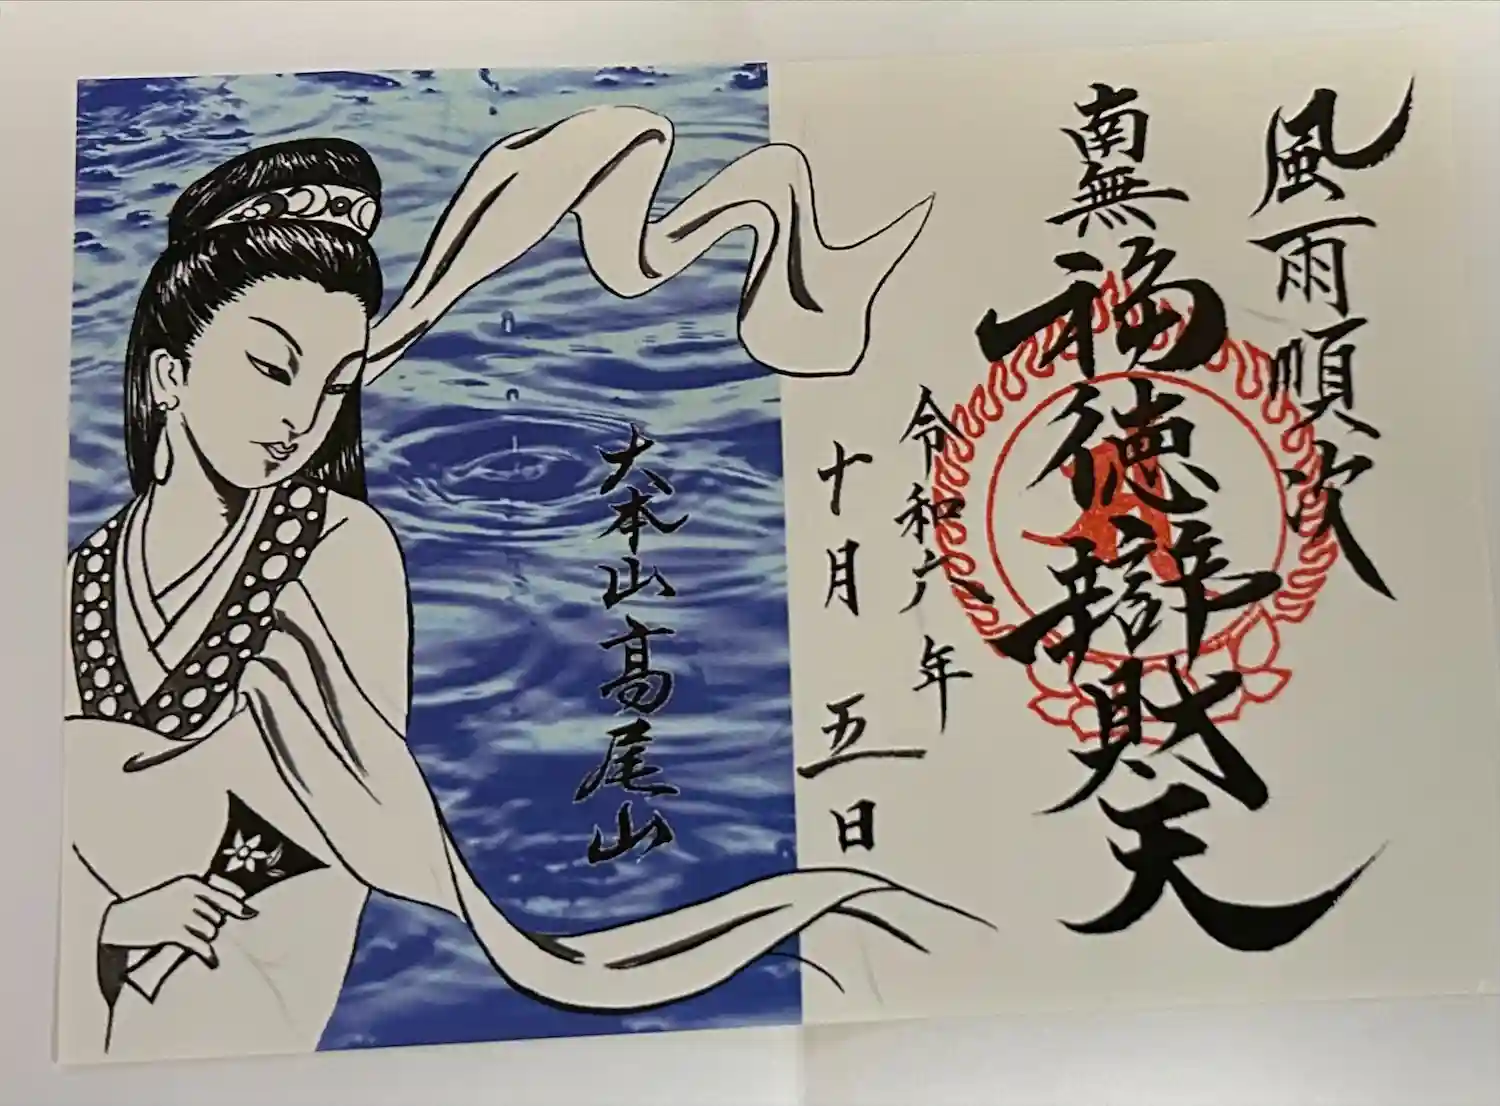 風雨順次
南無福徳辯財天
令和六年
十月五日
大本山高尾山